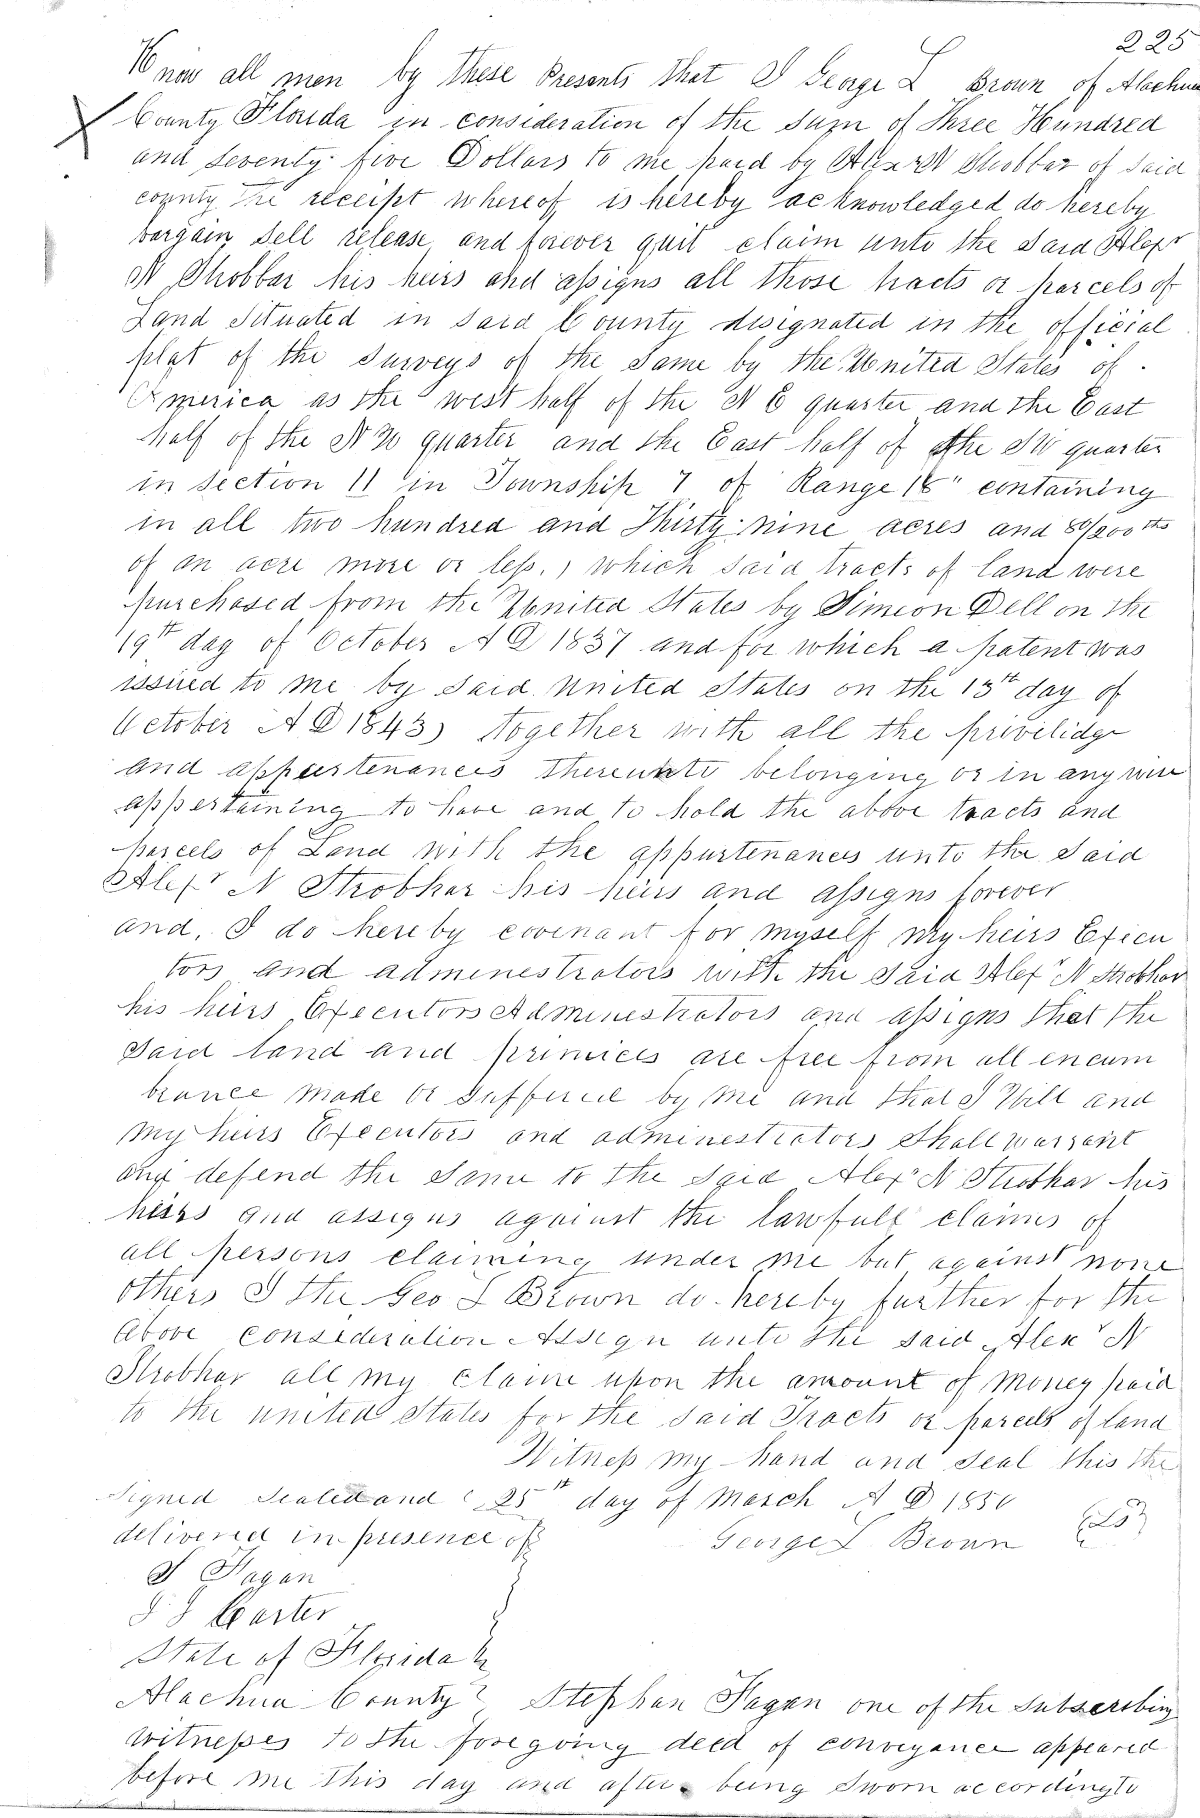 225
Know all men by these Presents that I George L Brown of Alachua
County Florida in consideration of the sum of Three Hundred
and seventy five Dollars to me paid by Alexr N Strobhar of said
county the receipt whereof is hereby acknowledged do hereby
bargain, sell release, and forever quit claim unto the said Alexr
N Strobhar his heirs and assigns all those tracts or parcels of
Land situated in said County designated in the official
plat of the surveys of the same by the United States of
America as the west half of the N E quarter and the East
half of the N W quarter and the East half of the SW quarter
in section 11 in Township 7 of Range 18 containing
in all two hundred and Thirty nine acres and 80/200ths
of an acre more or less, which said tracts of land were
purchased from the United States by Simeon Dell on the
19th day of October A D 1837 and for which a patent was
issued to me by said United States on the 13th day of
October A D 1843) together with all the privilidge
and appurtenances thereunto belonging or in any wise
appertaining to have and to hold the above tracts and
parcels of Land with the appurtenances unto the said
Alexr N Strobhar his heirs and assigns forever
and, I do hereby covenant for myself my heirs Execu
tors and adminestrators with the said Alexr N Strobhar
his heirs Executors Adminestrators and assigns that the
said land and primices are free from all encum
brance made or suffered by me and that I Will and
my heirs Executors and adminestrators shall warrant
and defend the same to the said Alexr N Strobhar his
heirs and assigns against the lawfull claims of
all persons claiming under me but against none
others I the Geo L Brown do hereby further for the
above consideration Assign unto the said Alexr N
Strobhar all my claim upon the amount of Money paid
to the united States for the said Tracts or parcels of land
Witness my hand and seal this the
signed sealed and 25th day of March A D 1850
delivered in presence of George L Brown
S Fagan
J J Carter
State of Florida
Alachua County Stephen Fagan one of the subscribing
witnesses to the foregoing deed of conveyance appeared
before me this day and after being sworn according to